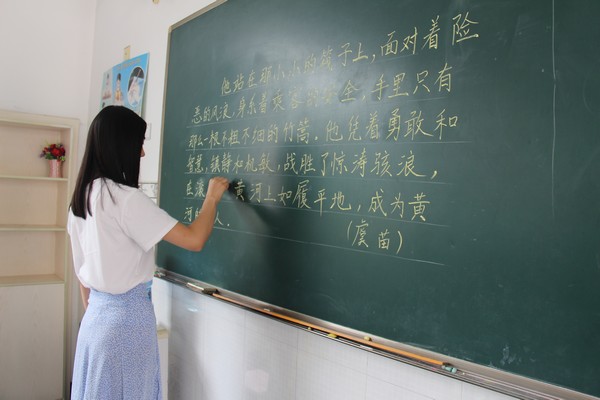 他站在那小小的筏子上，面对着险
恶的风浪，身系着乘客的安全，手里只有
那么一根不粗不细的竹篙．他凭着勇敢和
智慧，镇静和机敏，战胜了惊涛骇浪，
在滚黄河上如履平地，成为黄
河人．（虞苗）